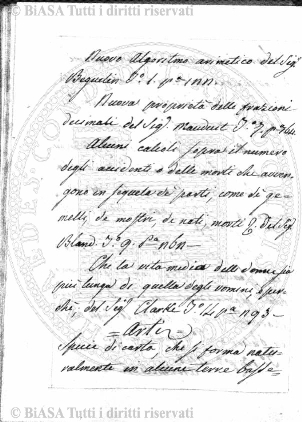 © BiASA Tutti i diritti riservati
Nuovo Algoritmo aritmetico del Sig.
Beguelin T.º 1. p.ª
Nuova proprietà delle frazioni
decimali del Sig.
Alcuni calcoli sopra il numero
degli accidenti o delle morti che avven-
gono in seguela de' parti, come di ge-
melli, de mostri, de nati, morti &. Del Sig.
Bland T.º 9. p.ª
Che la vita media delle donne sia
più lunga di quella degli uomini, e per-
chè, del Sig. Clarke T.º p.ª 93 —
= Arti =
Specie di carta, che si forma natu-
ralmente in alcune terre basse
© BiASA Tutti i diritti riservati